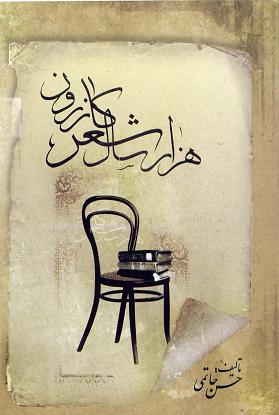 هزار سال شعر کازرون
تألیف:
حسن حاتمی